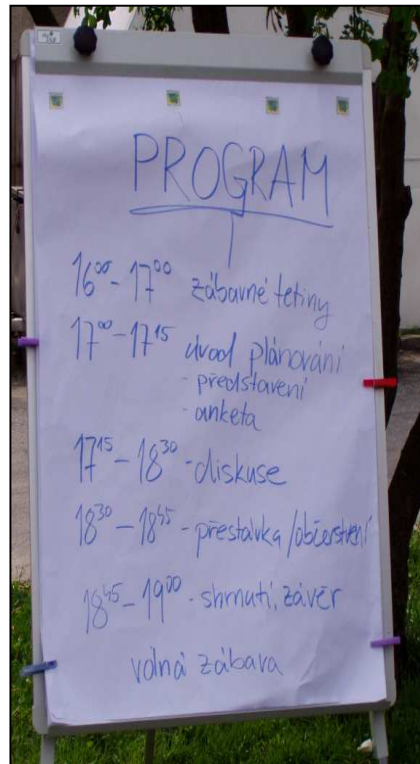 PROGRAM
16⁰⁰ - 17⁰⁰ zábavné tetiny
17⁰⁰ - 17¹⁵ úvod plánování
- představení
- anketa
17¹⁵ - 18³⁰ - diskuse
18³⁰ - 18⁴⁵ - přestávka / občerstvení
18⁴⁵ - 19⁰⁰ - shrnutí, závěr
volná zábava